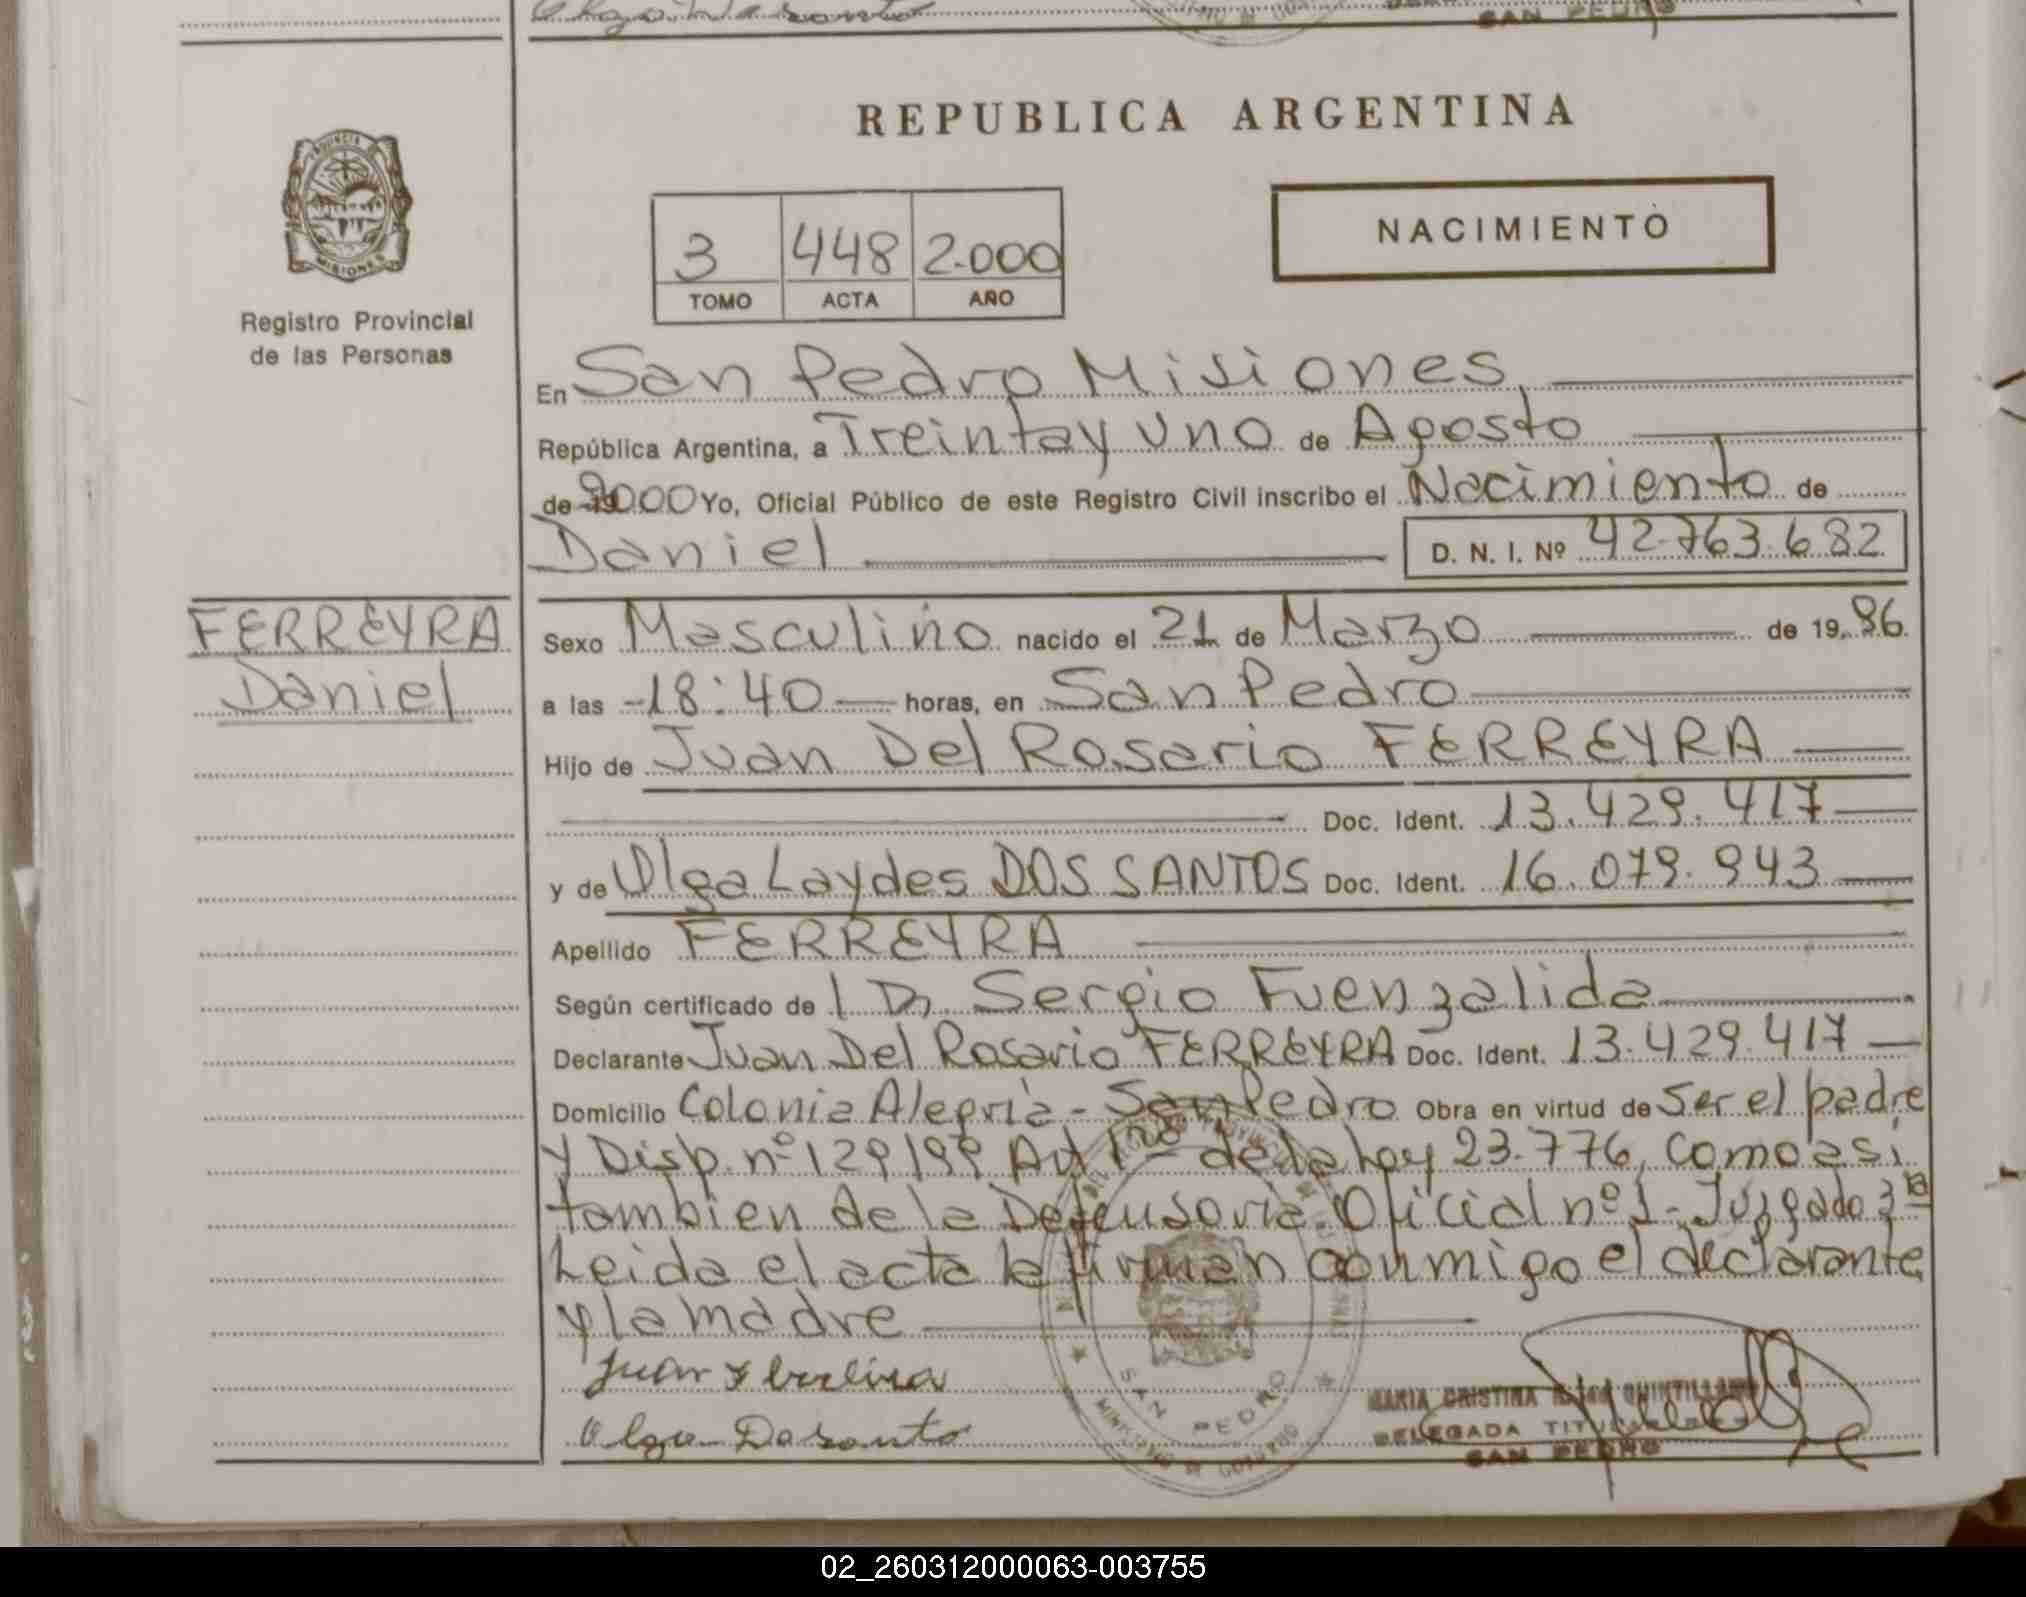 SAN PEDRO
REPUBLICA ARGENTINA
PROVINCIA DE
MISIONES
Registro Provincial
de las Personas
3 448 2.000
TOMO ACTA AÑO
NACIMIENTO
En San Pedro Misiones,
República Argentina, a Treinta y Uno de Agosto
de 2000 Yo, Oficial Público de este Registro Civil inscribo el Nacimiento de
Daniel D. N. I. Nº 42.763.682
FERREYRA
Daniel
Sexo Masculino nacido el 21 de Marzo de 19 86
a las 18:40 horas, en San Pedro
Hijo de Juan Del Rosario FERREYRA
Doc. Ident. 13.429.417
y de Olga Laydes DOS SANTOS Doc. Ident. 16.079.943
Apellido FERREYRA
Según certificado de Dr. Sergio Fuenzalida
Declarante Juan Del Rosario FERREYRA Doc. Ident. 13.429.417
Domicilio Colonia Alegría - San Pedro Obra en virtud de Ser el padre
y Disp. nº 129/99 Art 1ro de la Ley 23.776, como asi
tambien de la Defensoria Oficial nº 1 - Juzgado 3ra
Leida el acta la firman conmigo el declarante
y la madre
Juan
Olga Dosanto
SAN PEDRO
MINISTERIO DE GOBIERNO
MARIA CRISTINA
DELEGADA TITULAR
SAN PEDRO
02_260312000063-003755